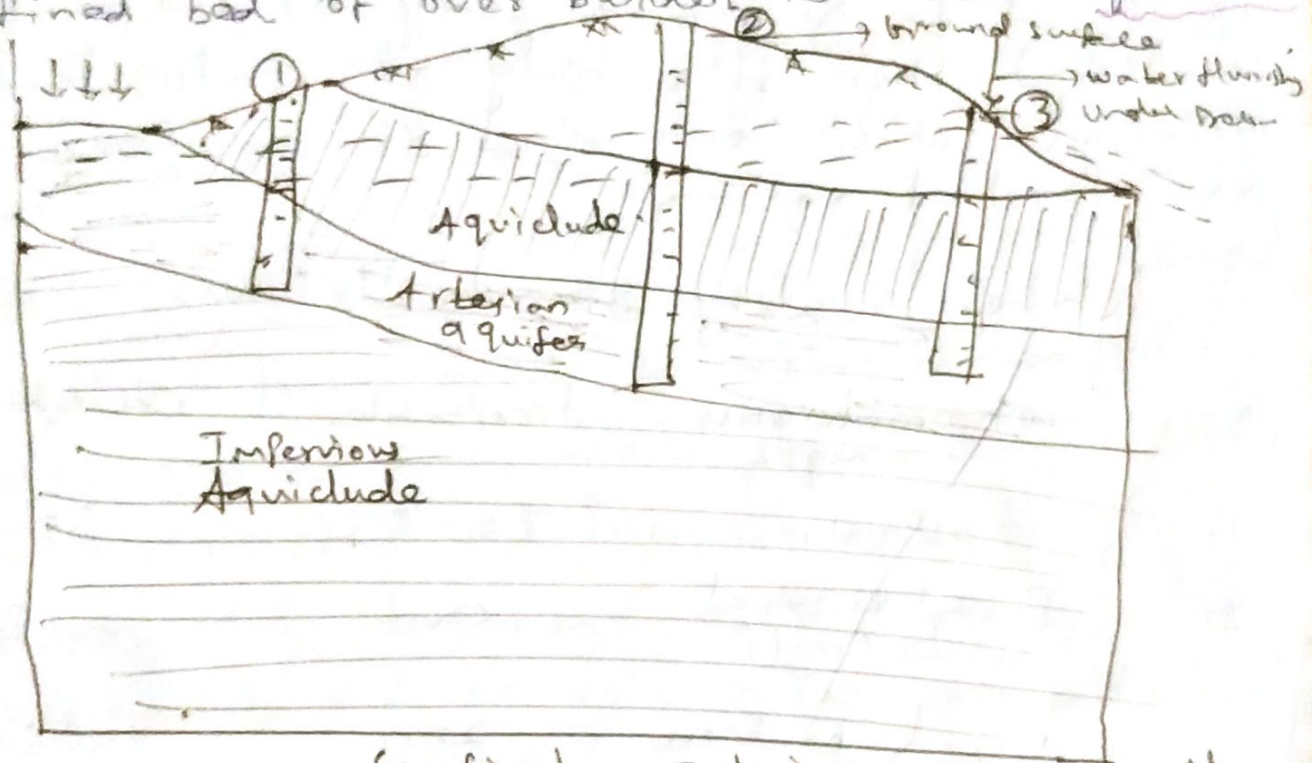 fined bed of over burden
② → Ground surface
① → water flowing
③ under
Aquiclude
Artesian
aquifer
Impervious
Aquiclude